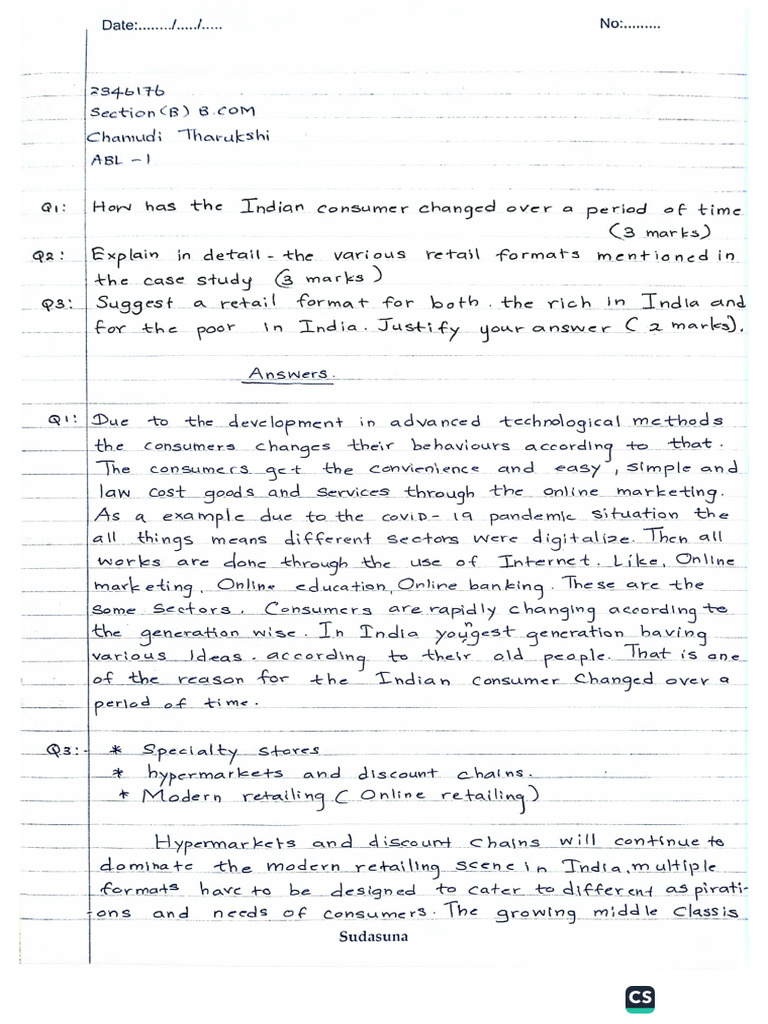 Date:......../...../.....
No:.........
2346176
Section (B) B.COM
Chamudi Tharukshi
ABL -1
Q1: How has the Indian consumer changed over a period of time
(3 marks)
Q2: Explain in detail - the various retail formats mentioned in
the case study (3 marks)
Q3: Suggest a retail format for both. the rich in India and
for the poor in India. Justify your answer (2 marks).
Answers.
Q1: Due to the development in advanced technological methods
the consumers changes their behaviours according to that.
The consumers get the convienience and easy, simple and
law cost goods and services through the online marketing.
As a example due to the covid-19 pandemic situation the
all things means different sectors were digitalize. Then all
works are done through the use of Internet. Like, Online
marketing, Online education, Online banking. These are the
some sectors. Consumers are rapidly changing according to
the generation wise. In India youngest generation having
various Ideas. according to their old people. That is one
of the reason for the Indian consumer changed over a
period of time.
Q3:- * Specialty stores
* hypermarkets and discount chains.
* Modern retailing (Online retailing)
Hypermarkets and discount chains will continue to
dominate the modern retailing scene in India, multiple
formats have to be designed to cater to different aspirati-
-ons and needs of consumers. The growing middle Class is
Sudasuna
CS